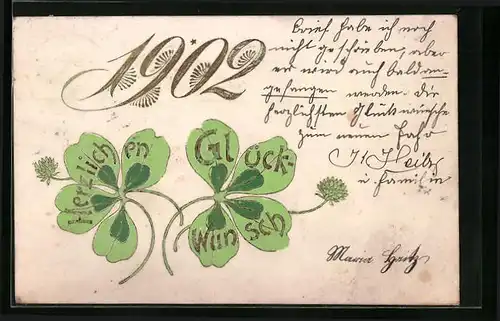 1902
Herzlichen
Glück-
Wunsch
Brief habe ich noch
nicht geschrieben, aber
er wird auch bald an-
gefangen werden. Die
herzlichsten Glückwünsche
zum neuen Jahr
u. Familie
Maria